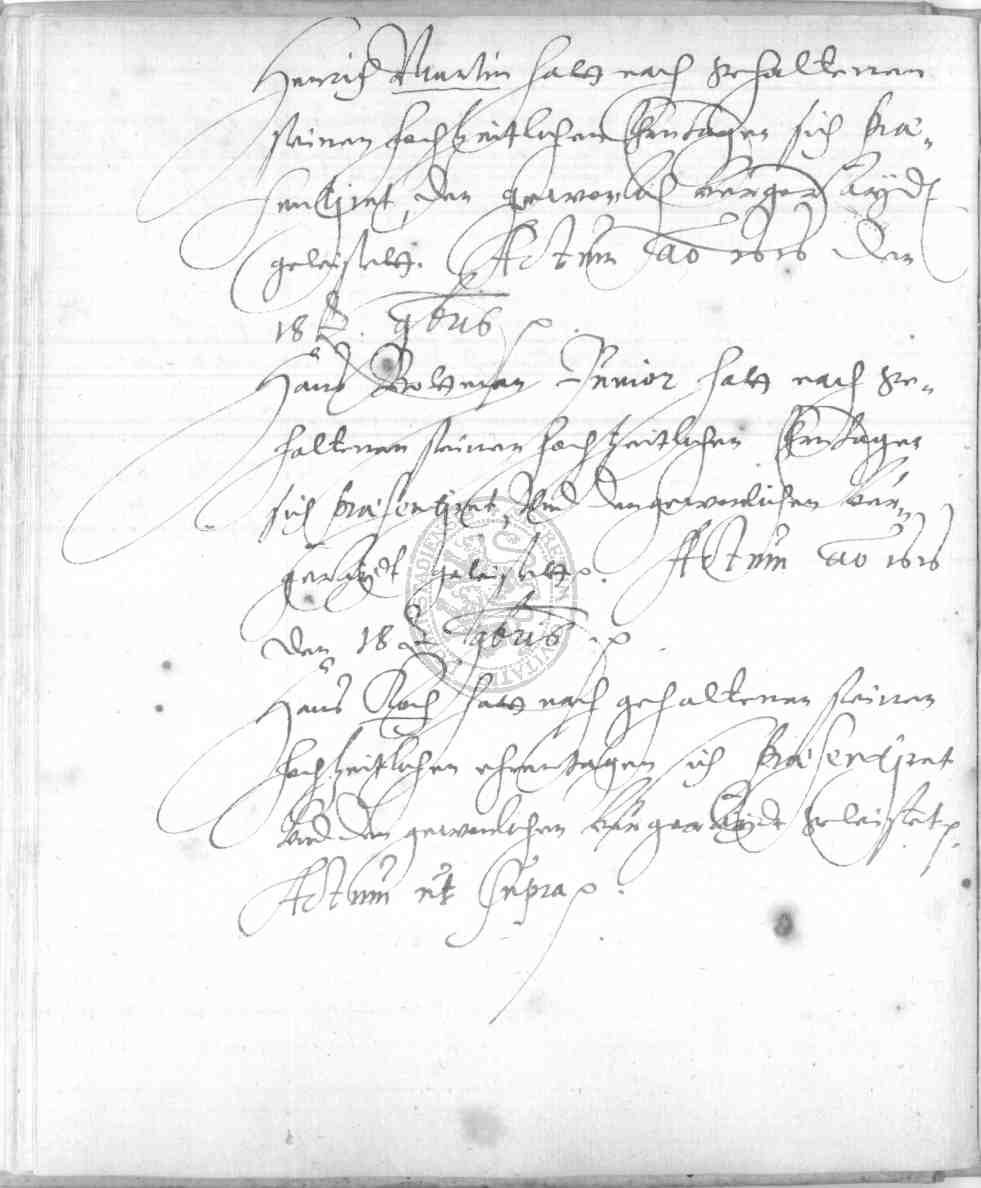 Henrich Martin hatt nach gehaltenem
seinen hochzeitlichen Ehrntagen sich præ-
sentiret, den gewonlich bürger Aydt
geleistett. Actum Ao 1616 den
18 9bris
Hans Junior hatt nach ge-
haltenen seinen hochzeitlichen Ehrntagen
sich præsentiret, Und den gewonlichen bür-
ger Aydt geleistett. Actum Ao 1616
den 18 9bris
Hans Koch hatt nach gehaltenen seinen
hochzeitlichen ehrentagen sich præsentiret
und den gewonlichen bürger Aydt geleistet
Actum ut supra